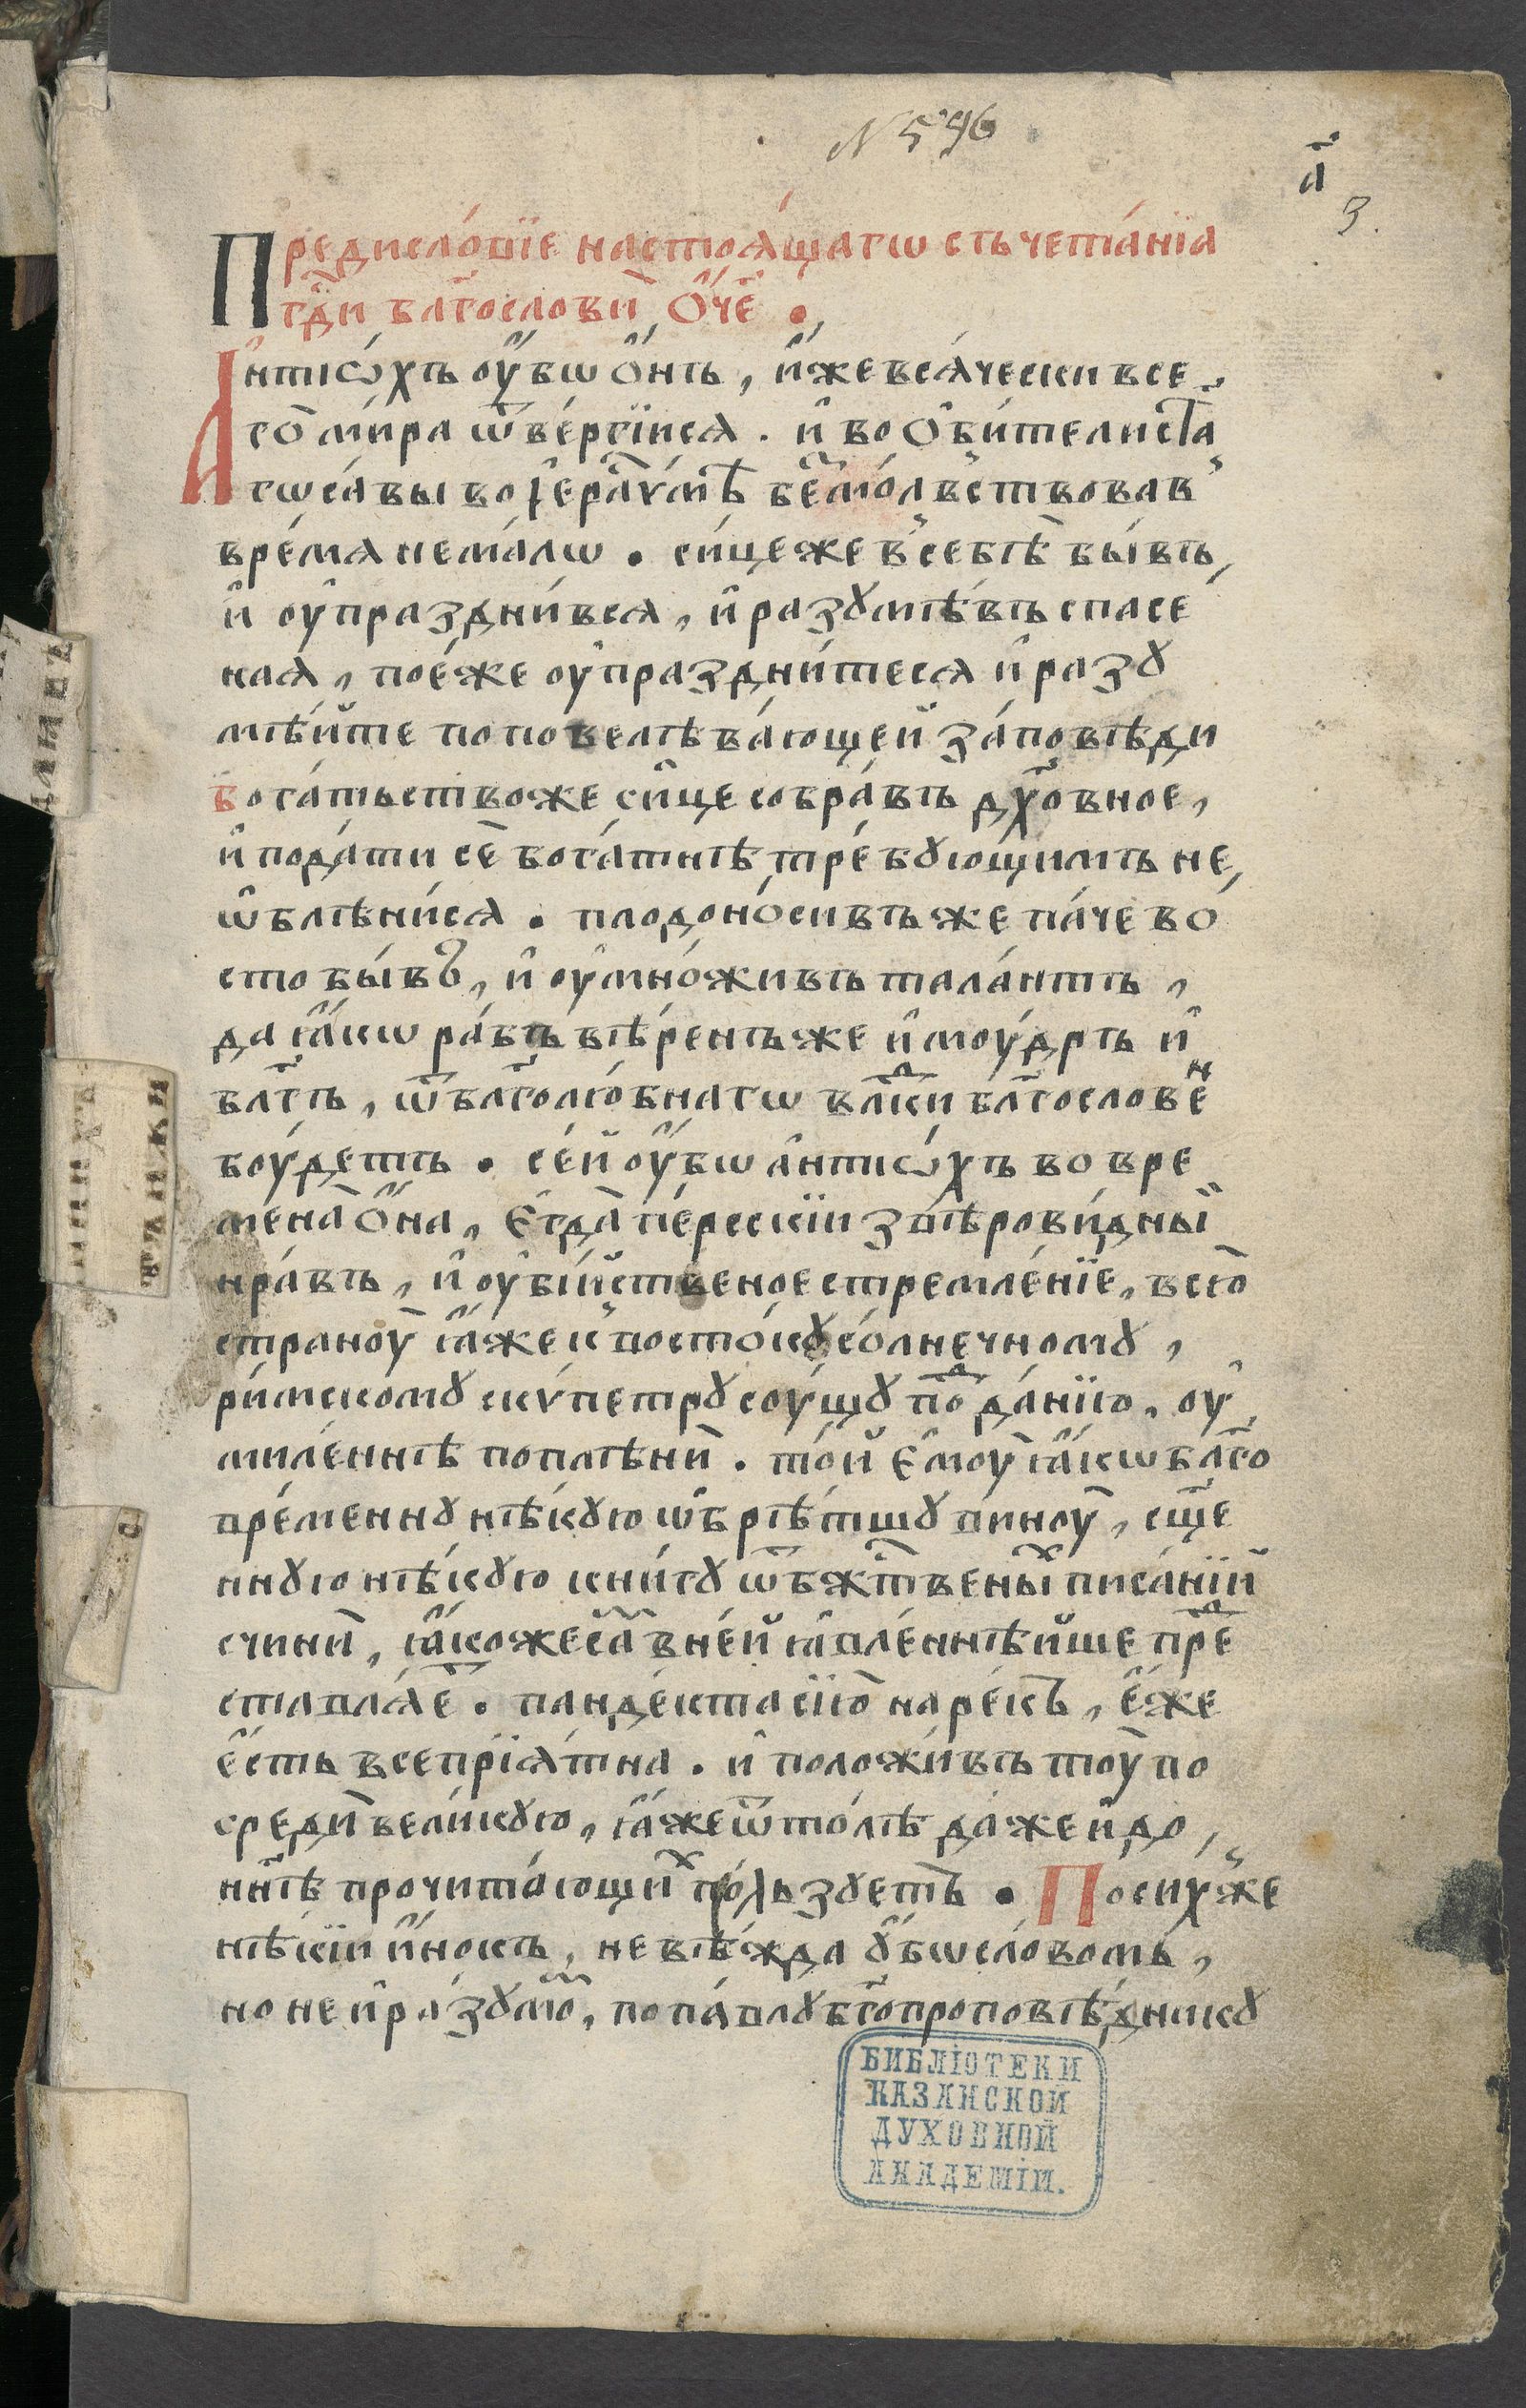 N 596
а҃
3.
Предисло́вїе настоѧ́щагѡ съчета́нїѧ
гдⷭ҇и блг҃ослови̑ ѻ҆́ч҃е .
А҆нтїѡ́хъ оу҆́бѡ ѻ҆́нъ , и҆́же всѧ́чески все
го̀ ми́ра ѿве́ргїисѧ . и҆ во ѻ҆би́тели ст҃а
гѡ са́вы во і҆ер҃ли́мѣ беⷥмо́лвствовав
вре́мѧ нема́лѡ . си́цеже в себѣ̀ бы́въ ,
и҆ оу҆праздни́всѧ , и҆ разꙋмѣ́въ спасе
наѧ , пое́же оу҆праздни́тесѧ и҆ разꙋ
мѣ́йте по повелѣва́ющей за́повѣди
бога́тьствоже си́це собра́въ дх҃о́вное ,
и҆ пода́ти сѐ бога́тнѣ тре́бꙋющимъ не
ѡ҆блѣни́сѧ . плодоно́сивъ же па́че во́
сто бы́въ , и҆ оу҆мно́живъ тала́нтъ ,
да ꙗ҆́кѡ ра́бъ вѣ́ренъ же и҆ моу́дръ и҆
бл҃гъ , ѿ бл҃голю́бнагѡ влⷣки бл҃гослове́н
боу́детъ . се́й оу҆́бѡ а҆нтїѡ́хъ во вре
мена̀ ѻ҆́на , є҆гда̀ пе́рсскїи звѣрови́дный
нра́въ , и҆ оу҆бі́йственое стремле́нїе , всю̀
страноу̀ ꙗ҆́же к восто́кꙋ со́лнечномꙋ ,
ри́мскомꙋ скѵ́петрꙋ соу́щꙋ поⷣда́нїю , оу҆
миле́ннѣ поплѣнѝ . то́й є҆моу̀ ꙗ҆́кѡ бл҃го
вре́меннꙋ нѣ́кꙋю ѡ҆брѣ́тшꙋ виноу̀ , сщ҃е
ннꙋю нѣ́кꙋю кни́гꙋ ѿ бжⷭ҇твены́х писа́нїй
счинѝ , ꙗ҆́коже са́м в не́й ꙗ҆вле́ннѣйше преⷣ
ставлѧ́еⷮ . панде́кта сїю̀ наре́къ , є҆́же
є҆́сть всепрїѧ́тна . и҆ положи́въ тоу̀ по
средѝ вели́кꙋю , ꙗ҆́же ѿто́лѣ да́же и҆ до
нн҃ѣ прочита́ющиⷯ по́льзꙋетъ . По сихже
нѣ́кїи и҆́нокъ , невѣ́жда ꙋ҆́бѡ сло́вомъ ,
но не и҆ ра́зꙋмоⷨ , по па́влꙋ бг҃опроповѣ́дникꙋ
БИБЛІОТЕКИ
КАЗАНСКОЙ
ДУХОВНОЙ
АКАДЕМІИ.